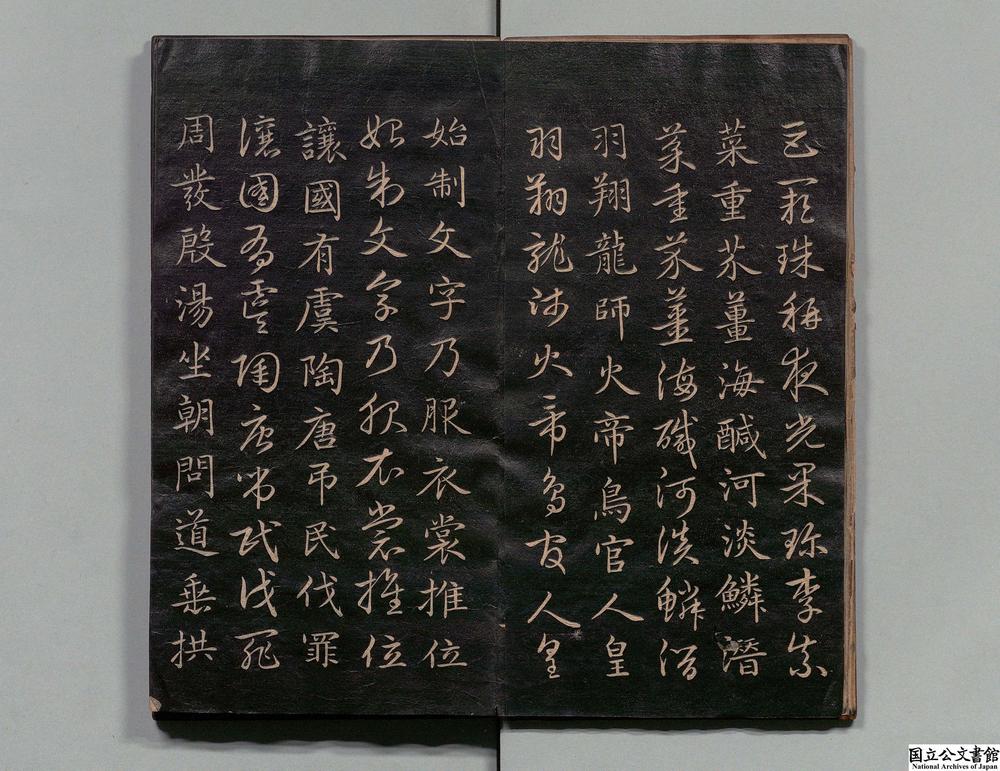 巨闕珠稱夜光果珍李柰
菜重芥薑海醎河淡鱗潛
菜重芥薑海鹹河淡鱗潛
羽翔龍師火帝鳥官人皇
羽翔龍師火帝鳥官人皇
始制文字乃服衣裳推位
始制文字乃服衣裳推位
讓國有虞陶唐吊民伐罪
讓國有虞陶唐吊民伐罪
周發殷湯坐朝問道垂拱
国立公文書館
National Archives of Japan